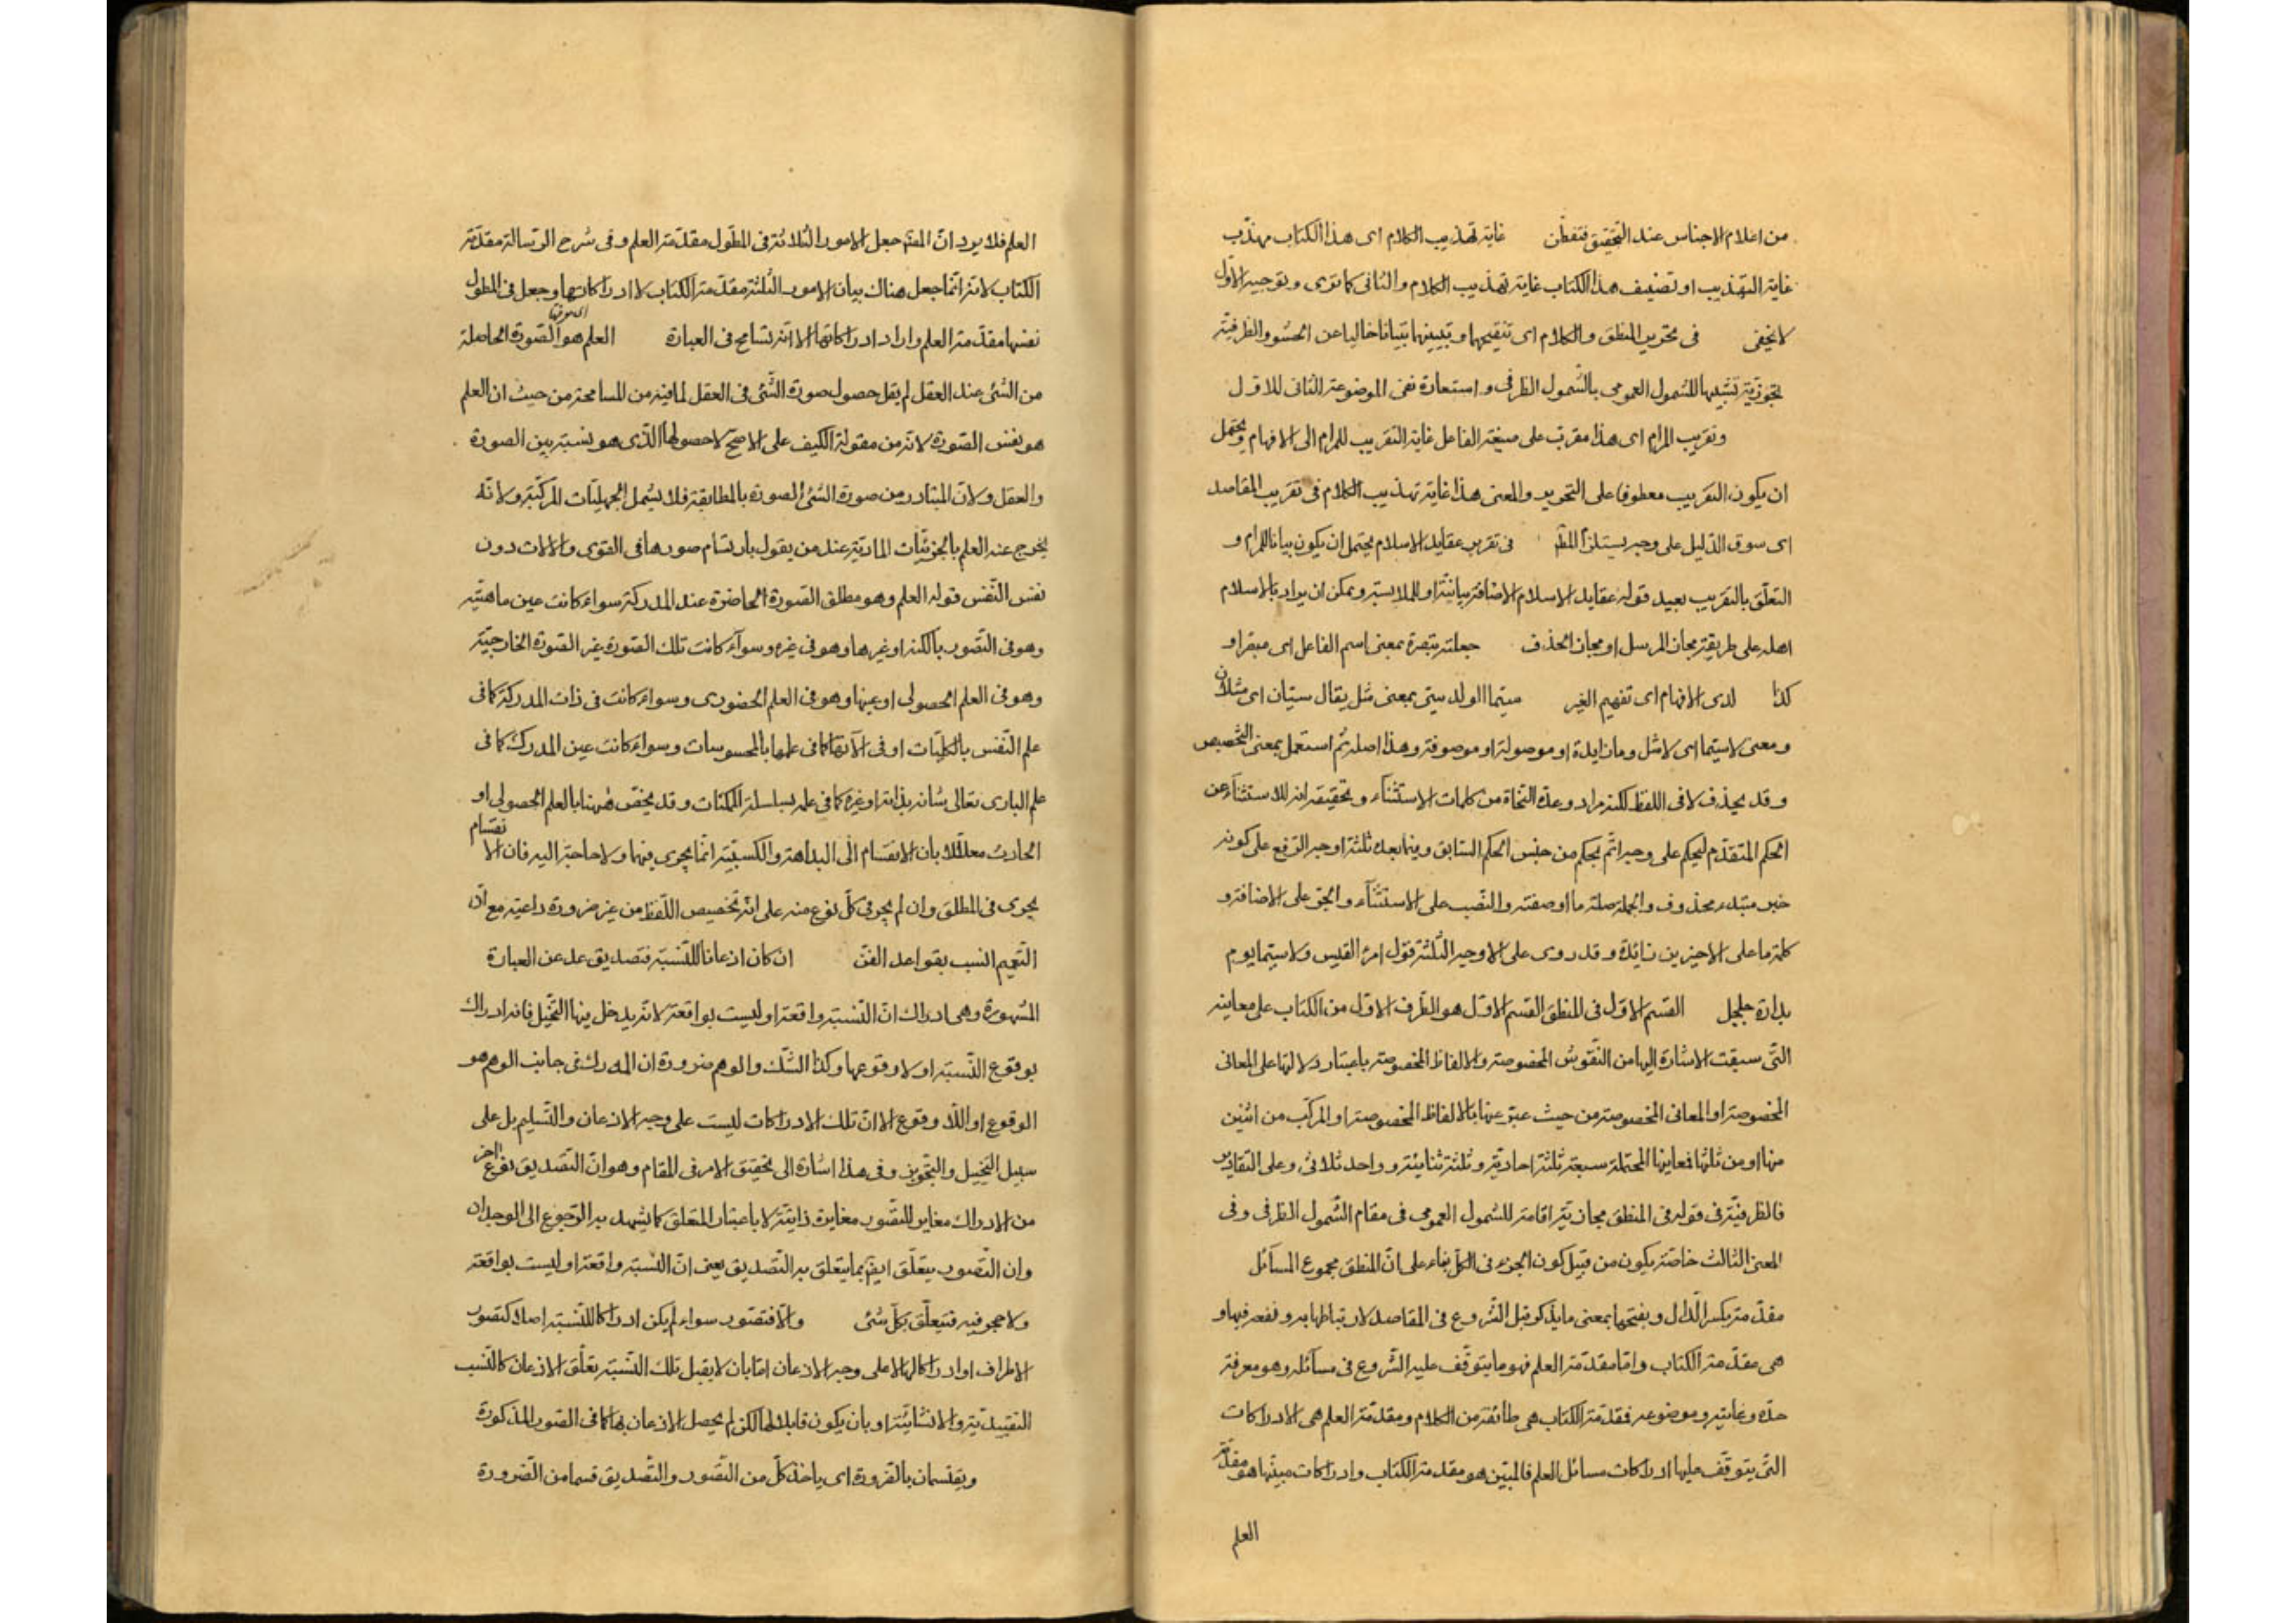 من اعلام الاجناس عند التحقيق فتفطن غاية تهذيب الكلام اى هذا الكتاب مهذب
غاية التهذيب او تصنيف هذا الكتاب غاية تهذيب الكلام والثانى كما ترى وتوجيه الاول
لا يخفى فى تحرير المنطق والكلام اى تنقيحها وتبيينها تبيانا خاليا عن الحشو والظرفية
تجوزية تشبيها للشمول العمومى بالشمول الظرفى واستعارة فى الموضوعة للثانى للاول
وتقريب المرام اى هذا مقرب على صيغة الفاعل غاية التقريب للمرام الى الافهام ويحتمل
ان يكون التقريب معطوفا على التحرير والمعنى هذا غاية تهذيب الكلام فى تقريب المقاصد
اى سوق الدليل على وجه يستلزم المط فى تقرير عقايد الاسلام يحتمل ان يكون بيانا للمرام و
التعلق بالتقريب بعيد قوله عقايد الاسلام الاضافة بيانية او للملابسة ويمكن ان يراد بالاسلام
اهله على طريقة مجاز المرسل او مجاز الحذف جعلته تبصرة بمعنى اسم الفاعل اى مبصرا و
كذا لدى الافهام اى تفهيم الغير سيما الولد سى بمعنى مثل يقال سيان اى مثلان
ومعنى لاسيما اى لا مثل وما زايدة او موصولة او موصوفة وهذا اصله ثم استعمل بمعنى التخصيص
وقد يحذف لا فى اللفظ لكنه مراد وعده النحاة من كلمات الاستثناء وتحقيقه انه للاستثناء عن
الحكم المتقدم ليحكم على وجه اتم بحكم من جنس الحكم السابق وفيما بعده ثلثة اوجه الرفع على كونه
خبر مبتدء محذوف والجملة صلة ما او صفته والنصب على الاستثناء والجر على الاضافة و
كلمة ما على الاخيرين زائدة وقد روى على الاوجه الثلثة قول امرء القيس ولاسيما يوم
بدارة جلجل القسم الاول فى المنطق القسم الاول هو الظرف الاول من الكتاب على معاينه
التى سبقت الاشارة اليها من النقوش المخصوصة والالفاظ المخصوصة باعتبار دلالتها على المعانى
المخصوصة او المعانى المخصوصة من حيث عبر عنها بالالفاظ المخصوصة او المركب من اثنين
منها او من ثلثها فعاينها المحتملة سبعة ثلثة احادية وثلثة ثنائية وواحد ثلاثى وعلى التقادير
فالظرفية فى قوله فى المنطق مجازية اقامة للشمول العمومى فى مقام الشمول الظرفى وفى
المعنى الثالث خاصة يكون من قبيل كون الجزء فى الكل بناء على ان المنطق مجموع المسائل
مقدمة بكسر الدال وبفتحها بمعنى ما يذكر قبل الشروع فى المقاصد لارتباطها به ونفعه فيها و
هى مقدمة الكتاب واما مقدمة العلم فهو ما يتوقف عليه الشروع فى مسائله وهو معرفة
حده وغايته وموضوعه فمقدمة الكتاب هى طائفة من الكلام ومقدمة العلم هى الادراكات
التى يتوقف عليها ادراكات مسائل العلم فالمبين هو مقدمة الكتاب وادراكات مبينها هو مقدمة
العلم
العلم فلا يرد ان المص جعل الامور الثلاثة فى المطول مقدمة العلم وفى شرح الرسالة مقدمة
الكتاب لانه انما جعل هناك بيان الامور الثلثة مقدمة الكتاب لا ادراكاتها وجعل فى المطول
نفسها مقدمة العلم واراد ادراكاتها الا انه تسامح فى العبارة العلم هو الصورة الحاصلة
من الشئ عند العقل لم يقل حصول صورة الشئ فى العقل لما فيه من المسامحة من حيث ان العلم
هو نفس الصورة لانه من مقولة الكيف على الاصح لا حصولها الذى هو نسبة بين الصورة
والعقل ولان المتبادر من صورة الشئ الصورة بالمطابقة فلا يشمل الجهليات المركبة ولانه
يخرج عنه العلم بالجزئيات المادية عند من يقول بارتسام صورها فى القوى والالات دون
نفس النفس قوله العلم وهو مطلق الصورة الحاضرة عند المدركة سواء كانت عين ماهيته
وهو فى التصور بالكنه او غيرها وهو فى غيره وسواء كانت تلك الصورة غير الصورة الخارجية
وهو فى العلم الحصولى او عينها وهو فى العلم الحضورى وسواء كانت فى ذات المدركة كما فى
علم النفس بالكليات او فى آلاتها كما فى علمها بالمحسوسات وسواء كانت عين المدرك كما فى
علم البارى تعالى شانه بذاته او غيره كما فى علمه بسلسلة الممكنات وقد يخص ههنا بالعلم الحصولى او
الحادث معللا بان الانقسام الى البداهة والكسبية انما يجرى فيها ولا حاجة اليه فان الانقسام
يجرى فى المطلق وان لم يجر فى كل نوع منه على انه تخصيص اللفظ من غير ضرورة داعية مع ان
التعميم انسب بقواعد الفن ان كان اذعانا للنسبة فتصديق عدل عن العبارة
المشهورة وهى ادراك ان النسبة واقعة او ليست بواقعة لانه يدخل فيها التخيل فانه ادراك
بوقوع النسبة او لا وقوعها وكذا الشك والوهم ضرورة ان المدرك فى جانب الوهم هو
الوقوع او اللا وقوع الا ان تلك الادراكات ليست على وجه الاذعان والتسليم بل على
سبيل التخييل والتجويز وفى هذا اشارة الى تحقيق الامر فى المقام وهو ان التصديق نوع آخر
من الادراك مغاير للتصور مغايرة ذاتية لا باعتبار المتعلق كما يشهد به الرجوع الى الوجدان
وان التصور يتعلق ايض بما يتعلق به التصديق يعنى ان النسبة واقعة او ليست بواقعة
ولا حجر فيه فيتعلق بكل شئ والا فتصور سواء لم يكن ادراكا للنسبة اصلا كتصور
الاطراف او ادراكا لها لا على وجه الاذعان اما بان لا يقبل تلك النسبة تعلق الاذعان كالنسب
التقييدية والانشائية او بان يكون قابلا لها لكن لم يحصل الاذعان بها كما فى الصور المذكورة
ويقتسمان بالضرورة اى ياخذ كل من التصور والتصديق قسما من الضرورة